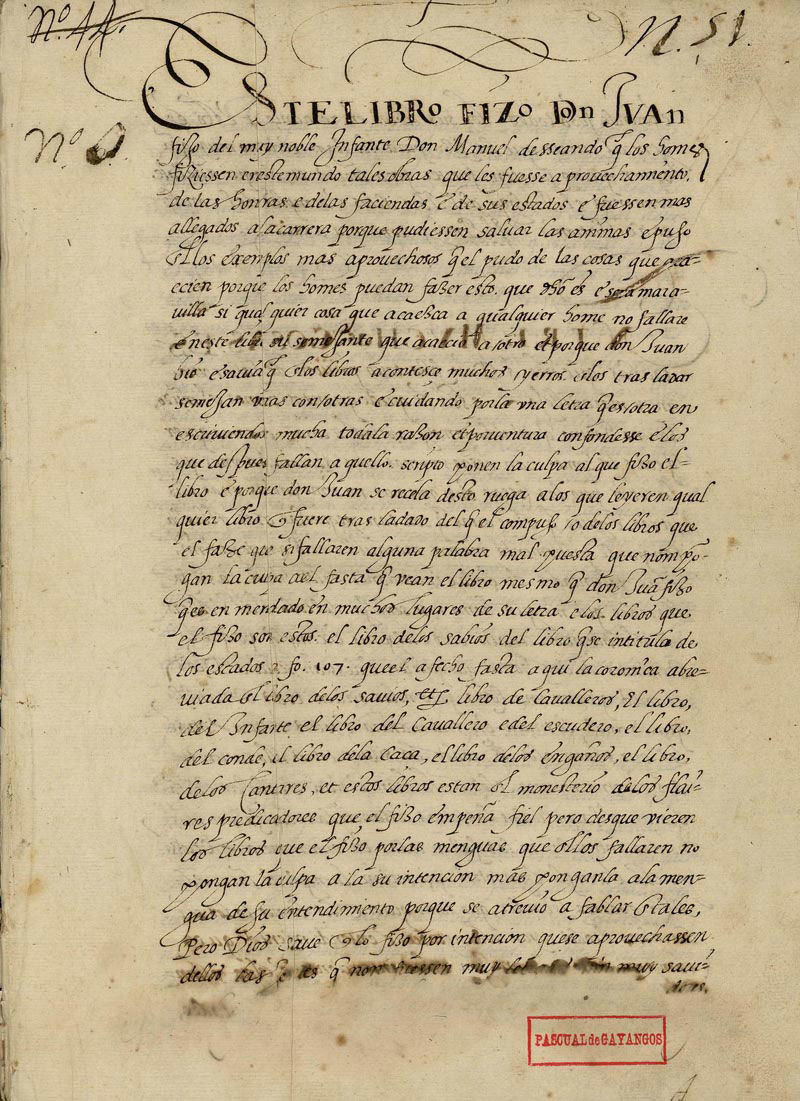 Nº 44.
N. 51.
Nº
ESTE LIBRO FIZO Dõn IVAn
fijo del muy noble Infante Don Manuel desseando q̃ los homes
fiziessen en este mundo tales obras que les fuesse a provechamiento.
de las honras e de las faciendas e de sus estados e fuessen mas
allegados a la carrera porque pudiessen saluar las animas e puso
ellos exemplos mas aprovechosos q̃ el pudo de las cosas que aca-
ecien porque los homes puedan fazer esto. que es e sera mara-
uilla si qual quier cosa que acaesca a qualquier home no fallare
en este lib. su semejante que acaecio a otro et porque don Juan
bio e sauia q̃ los libros acontesce muchos yerros los trasladar
semejan unas con otras e cuidando por la vna letra q̃ es otra en
escriuiendo mucha toda la razon et porventura confondesse e los
que despues fallan aquello. scripto ponen la culpa al que fizo el
libro e porque don Juan se recela desto ruega a los que leyeren qual
quier libro q̃ fuere tras ladado del q̃ el compuso o de los libros que
el faze que si fallaren alguna palabra mal puesta que non pon-
gan la culpa a el fasta q̃ vean el libro mesmo q̃ don Juã fizo
q̃ es enmendado en muchos lugares de su letra e los libros que
el fizo son estos. el libro de los sabios del libro q̃ se intitula de
los estados fo. 107. que el a fecho fasta aqui la coronica abre-
uiada el libro de los sauios, et el libro de Cavalleros, El libro,
del Infante, el libro del Cavallero e del escudero, el libro,
del conde, el libro de la Caça, el libro de los engaños, el libro,
de los Cantares, et estos libros estan el monesterio de los flai-
res predicadores que el fizo empeña fiel pero desque vieren
los libros que el fizo por las menguas que ellos fallaren no
pongan la culpa a la su intencion mas ponganla a la men-
gua de su entendimiento porque se atrevio a fablar tales,
Pero Dios save q̃ lo fizo por intencion que se aprovechassen
dellos las q̃ non fuessen muy muy saui-
dores.
PASCUAL de GAYANGOS